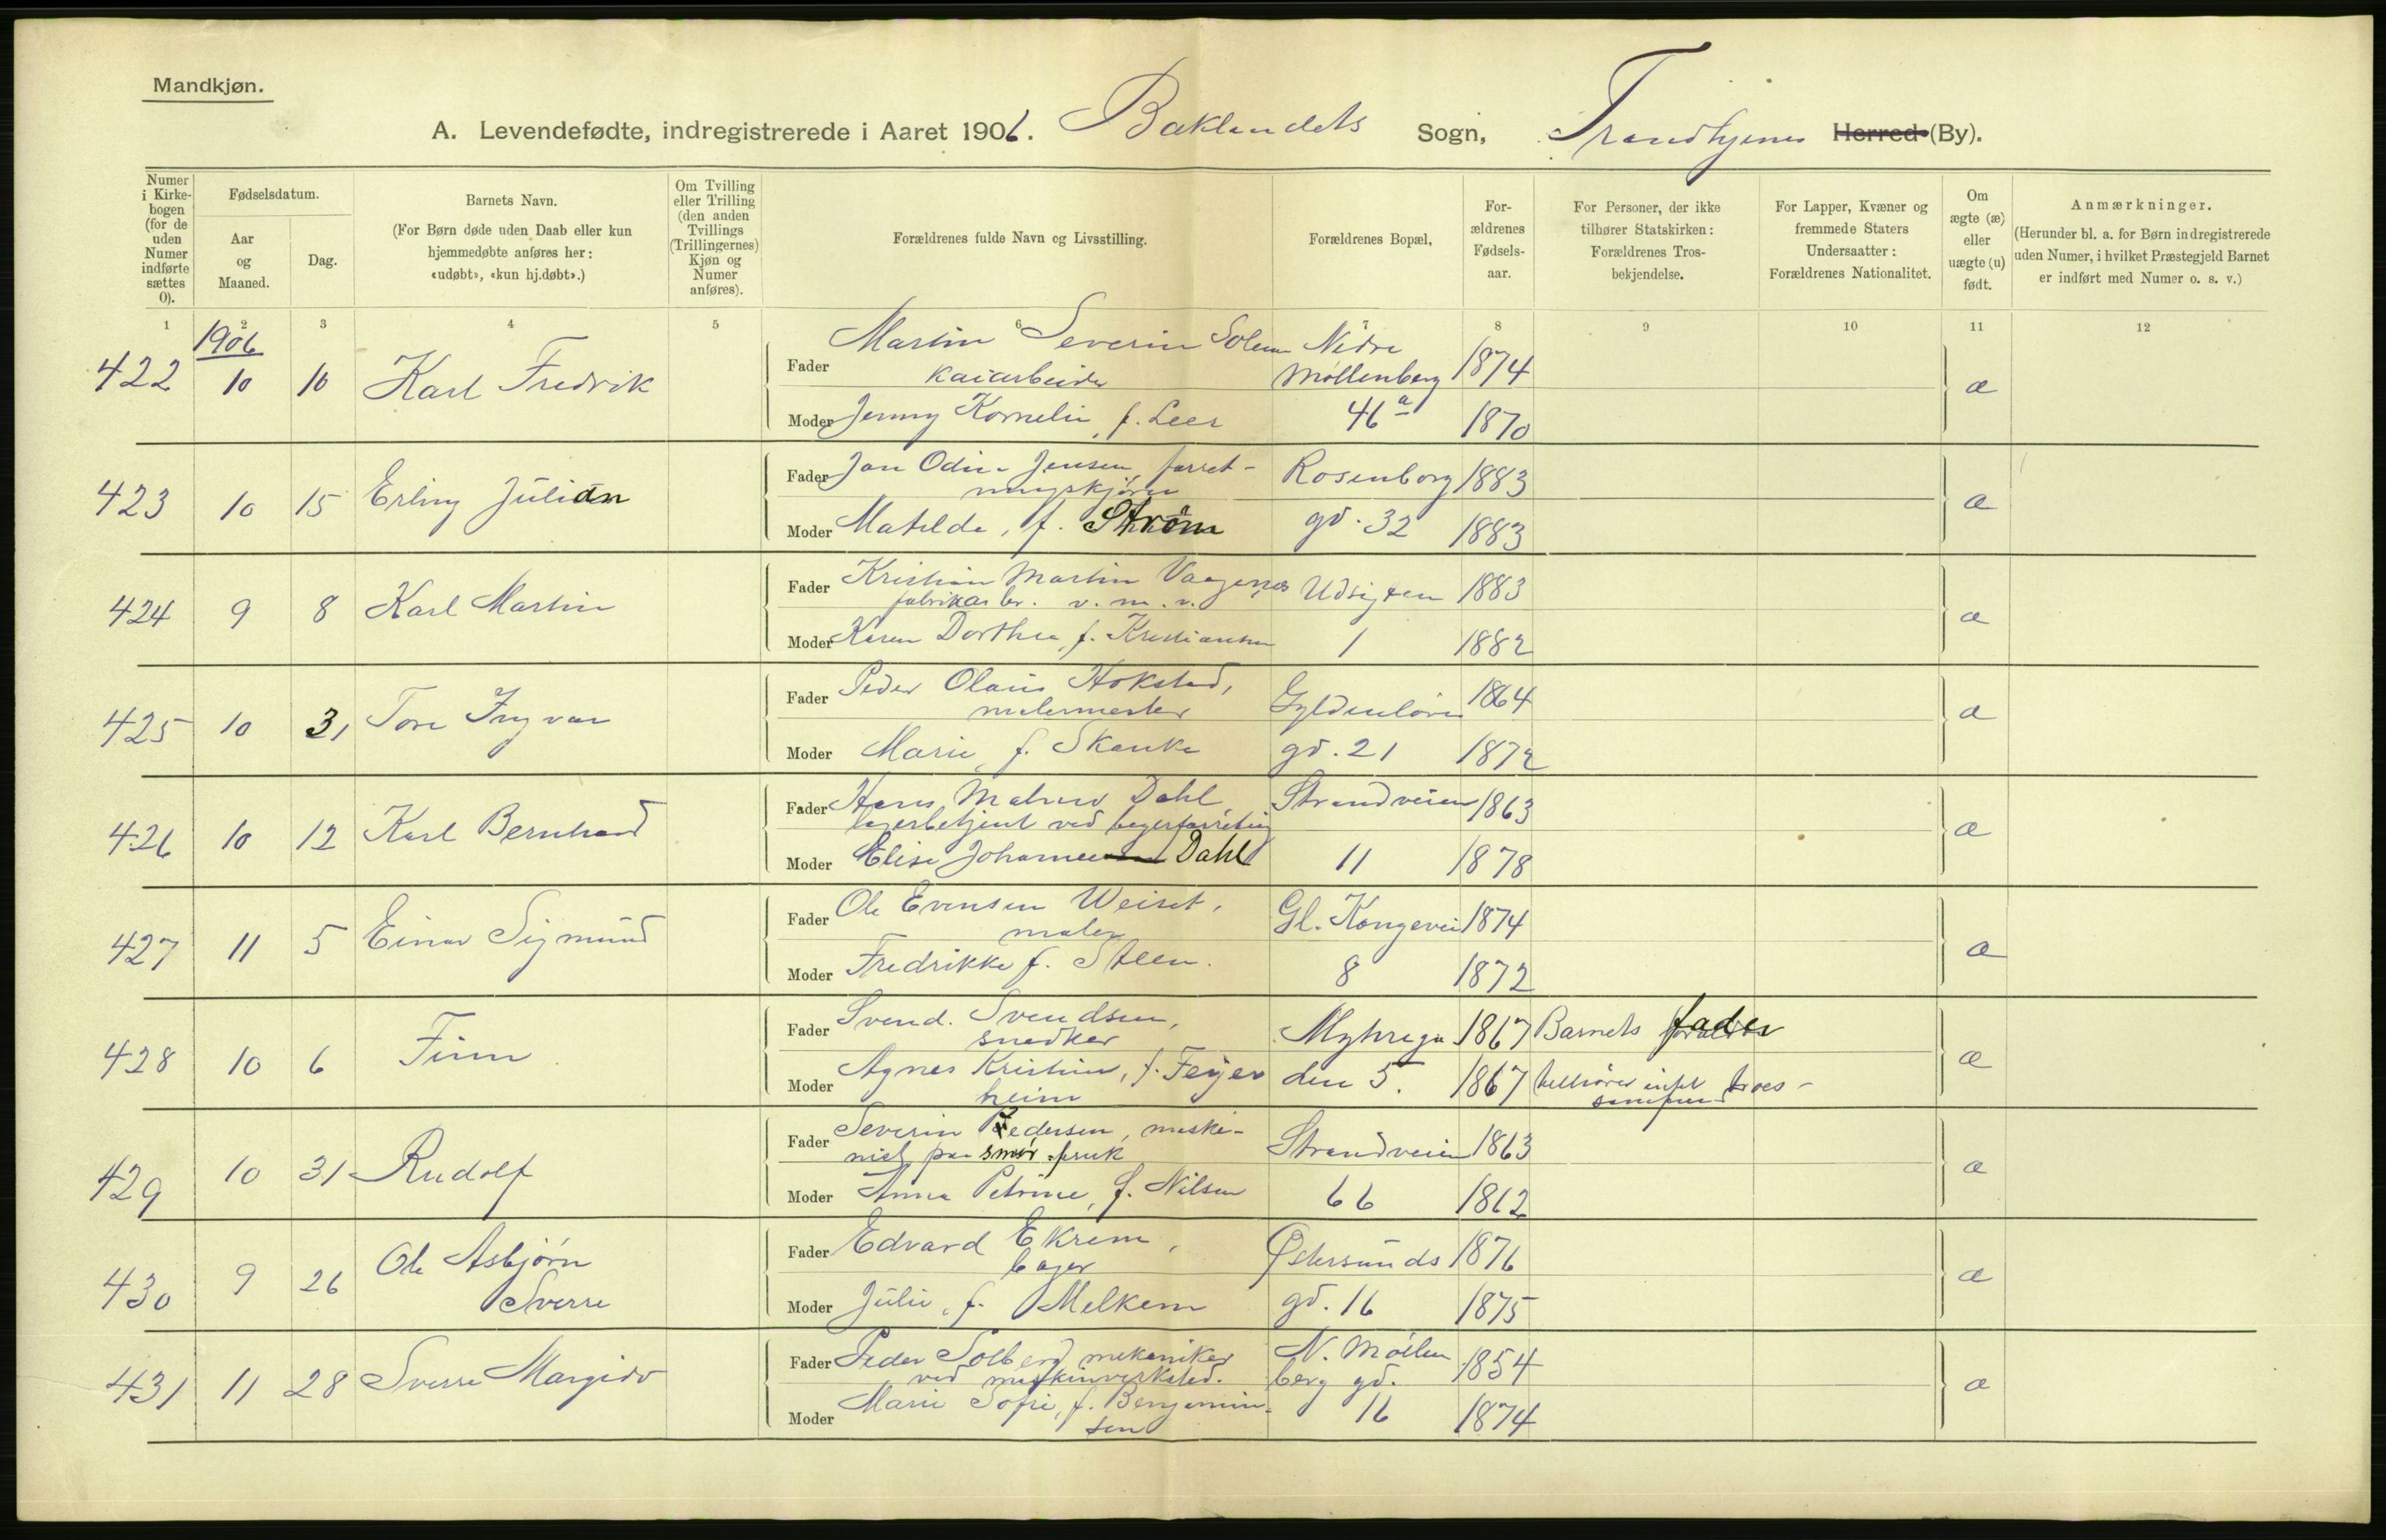 Mandkjøn.
A. Levendefødte, indregistrerede i Aaret 1906. Baklandets Sogn, Trondhjems Herred (By).
Numer i Kirkebogen (for de uden Numer indførte sættes 0).
Fødselsdatum.
Aar og Maaned.
Dag.
Barnets Navn.
(For Børn døde uden Daab eller kun hjemmedøbte anføres her: «udøbt», «kun hj.døbt».)
Om Tvilling eller Trilling (den anden Tvillings (Trillingernes) Kjøn og Numer anføres).
Forældrenes fulde Navn og Livsstilling.
Forældrenes Bopæl,
Forældrenes Fødselsaar.
For Personer, der ikke tilhører Statskirken: Forældrenes Trosbekjendelse.
For Lapper, Kvæner og fremmede Staters Undersaatter: Forældrenes Nationalitet.
Om ægte (æ) eller uægte (u) født.
Anmærkninger.
(Herunder bl. a. for Børn indregistrerede uden Numer, i hvilket Præstegjeld Barnet er indført med Numer o. s. v.)
1 2 3 4 5 6 7 8 9 10 11 12
1906
422 10 10 Karl Fredrik Fader Martin Severin Solem Nedre 1874 æ
kaiarbeider Møllenberg
Moder Jenny Kornelie, f. Leer 46a 1870
423 10 15 Erling Julian Fader Jon Odin Jensen, forret- Rosenborg 1883 æ
ningskjører
Moder Matilde, f. Strøm gd. 32 1883
424 9 8 Karl Martin Fader Kristian Martin Vaagenes Udsigten 1883 æ
fabrikarb. v. m. v.
Moder Karen Dorthea, f. Kristiansen 1 1882
425 10 31 Tore Ingvar Fader Peder Olaus Hokstad, Gyldenløves 1864 æ
malermester
Moder Marie, f. Skanke gd. 21 1872
426 10 12 Karl Bernhard Fader Hans Dahl, Strandveien 1863 æ
lagerbetjent ved
Moder Elise Johanne Dahl 11 1878
427 11 5 Einar Sigmund Fader Ole Evensen Weiset, Gl. Kongevei 1874 æ
maler
Moder Fredrikke f. Steen. 8 1872
428 10 6 Finn Fader Svend Svendsen, Myhrega 1867 Barnets fader æ
snedker
Moder Agnes Kristine, f. Feyer den 5. 1867 tilhører intet troes-
heim samfund
429 10 31 Rudolf Fader Severin Pedersen, maski- Strandveien 1863 æ
nist paa smør.
Moder Anna Petrine, f. Nilsen 66 1862
430 9 26 Ole Asbjørn Fader Edvard Ekrem, Østersunds 1876 æ
Sverre bager
Moder Julie, f. Melkem gd. 16 1875
431 11 28 Sverre Margido Fader Peder Solberg mekaniker N. Møllen 1854 æ
ved maskinverksted. berg gd.
Moder Marie Sofie, f. Benjamin- 16 1874
sen